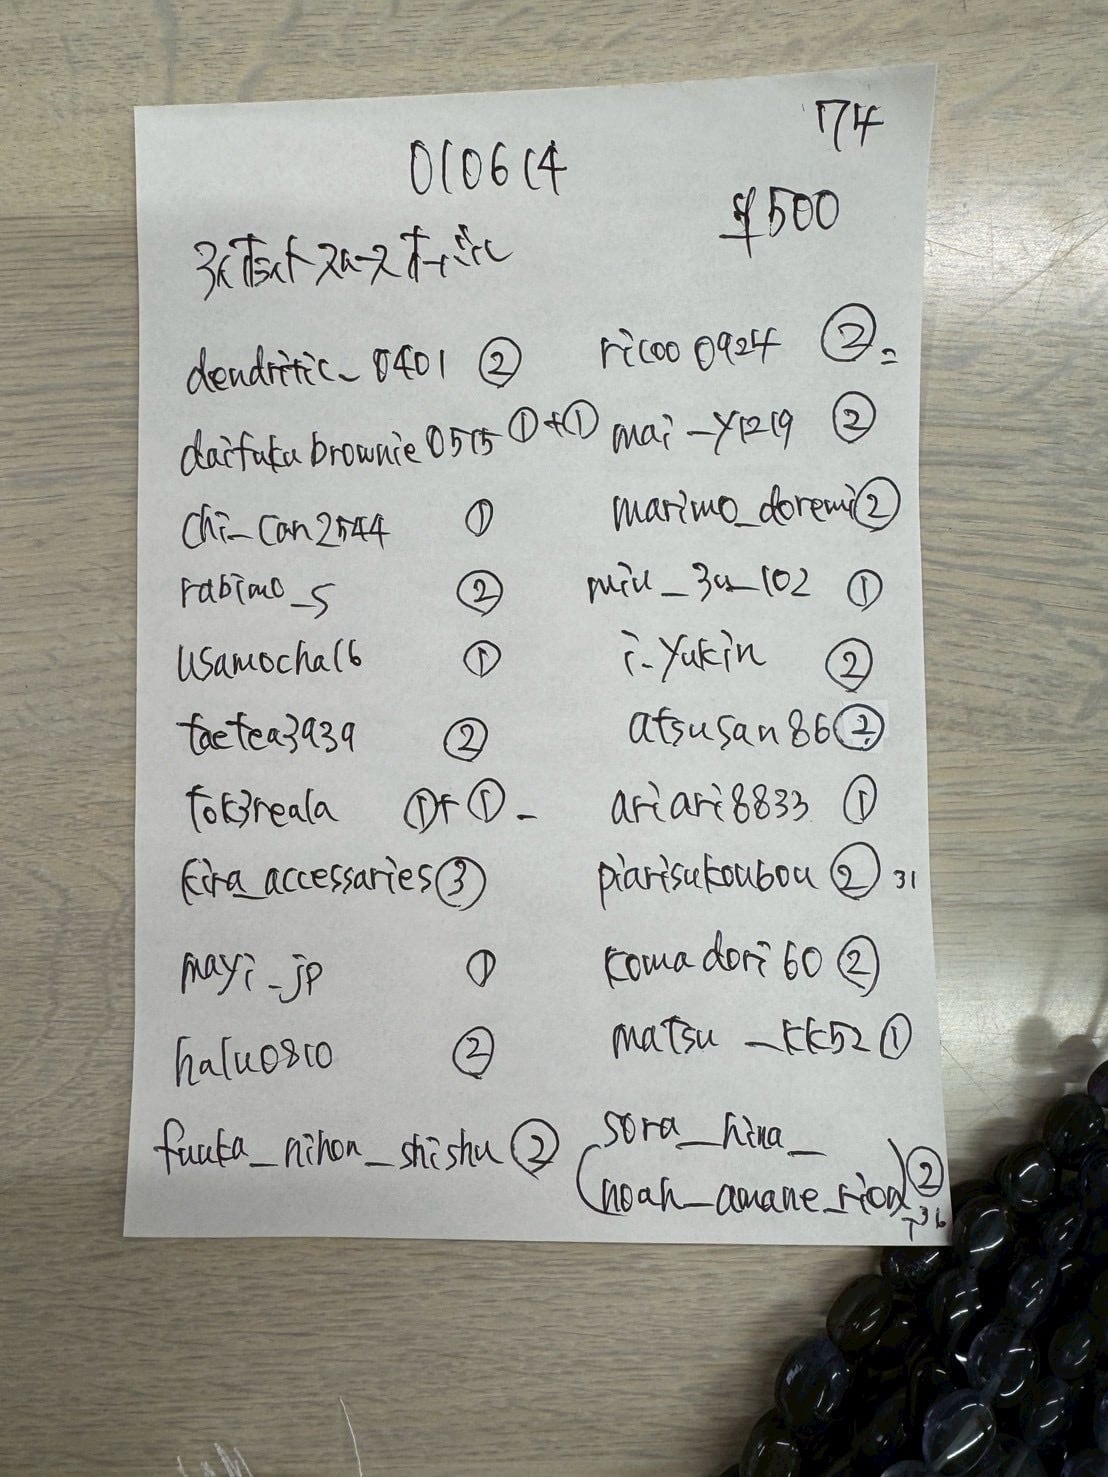 74
010614
¥500
dendritic_0401 ②
daifuku brownie 0515 ①+①
chi_can2544 ①
rabimo_5 ②
usamocha16 ①
taetea3939 ②
tok3reala ①+①-
kira_accessaries ③
mayi_jp ①
halu0810 ②
fuuka_nihon_shishu ②
ricoo0924 ②=
mai_y1219 ②
marimo_doremi ②
miu_3u_102 ①
i_yukin ②
atsusan86 ②
ariari8833 ①
piarisukoubou ② 31
komadori60 ②
matsu_kk52 ①
sora_hina_
(noah_amane_rion) ②
36